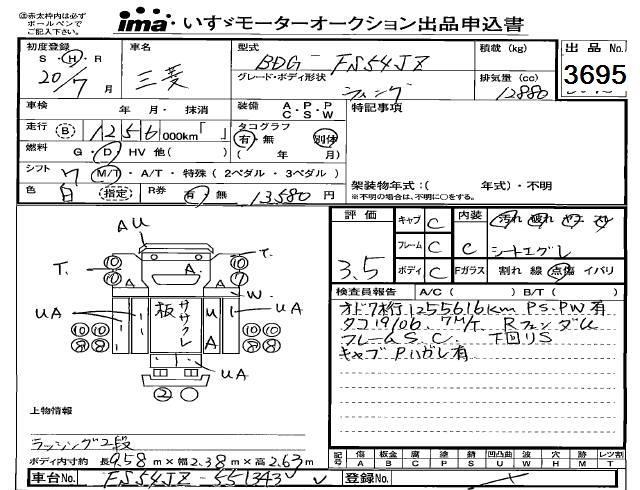 ㊟赤太枠内は必ず
ボールペンで
ご記入下さい。
ima いすゞモーターオークション出品申込書
初度登録
S・H・R
20/7月
車名
三菱
型式
BDG-FS54JZ
グレード・ボディ形状
ウィング
積載(kg)
排気量(cc)
12880
出品No.
3695
車検 年 月・抹消
装備 A.P.P
C.S.W
特記事項
走行 B 1256 000km「 」
タコグラフ
有・無 別体
( 年 月)
燃料 G・D・HV 他( )
シフト 7 M/T・A/T・特殊(2ペダル・3ペダル)
色 白 (指定) R券 有 無 13580円
架装物年式:( 年式)・不明
※不明の場合は、不明に○をする。
評価
3.5
キャブ C
フレーム C
ボディ C
内装 汚れ 破れ
C シートエグレ
Fガラス 割れ 線 点傷 イバリ
検査員報告 A/C( ) B/T( )
オドク桁行1255616km PS.PW有
タコ19/06. 7M/T. Rフェンダム
フレームS.C. 下回リS
キャブPハガレ有
AU
T.
T.
A.
A.
W.
UA
UA
UA
板
ササクレ
U
A
2
上物情報
ラッシング2段
ボディ内寸約 長9.58m×幅2.38m×高2.63m
記号 傷 板金 腐 塗 錆 凹凸曲 波 穴 跡 レツ割
A B C P S U W H M T
車台No. FS54JZ-551343
登録No.